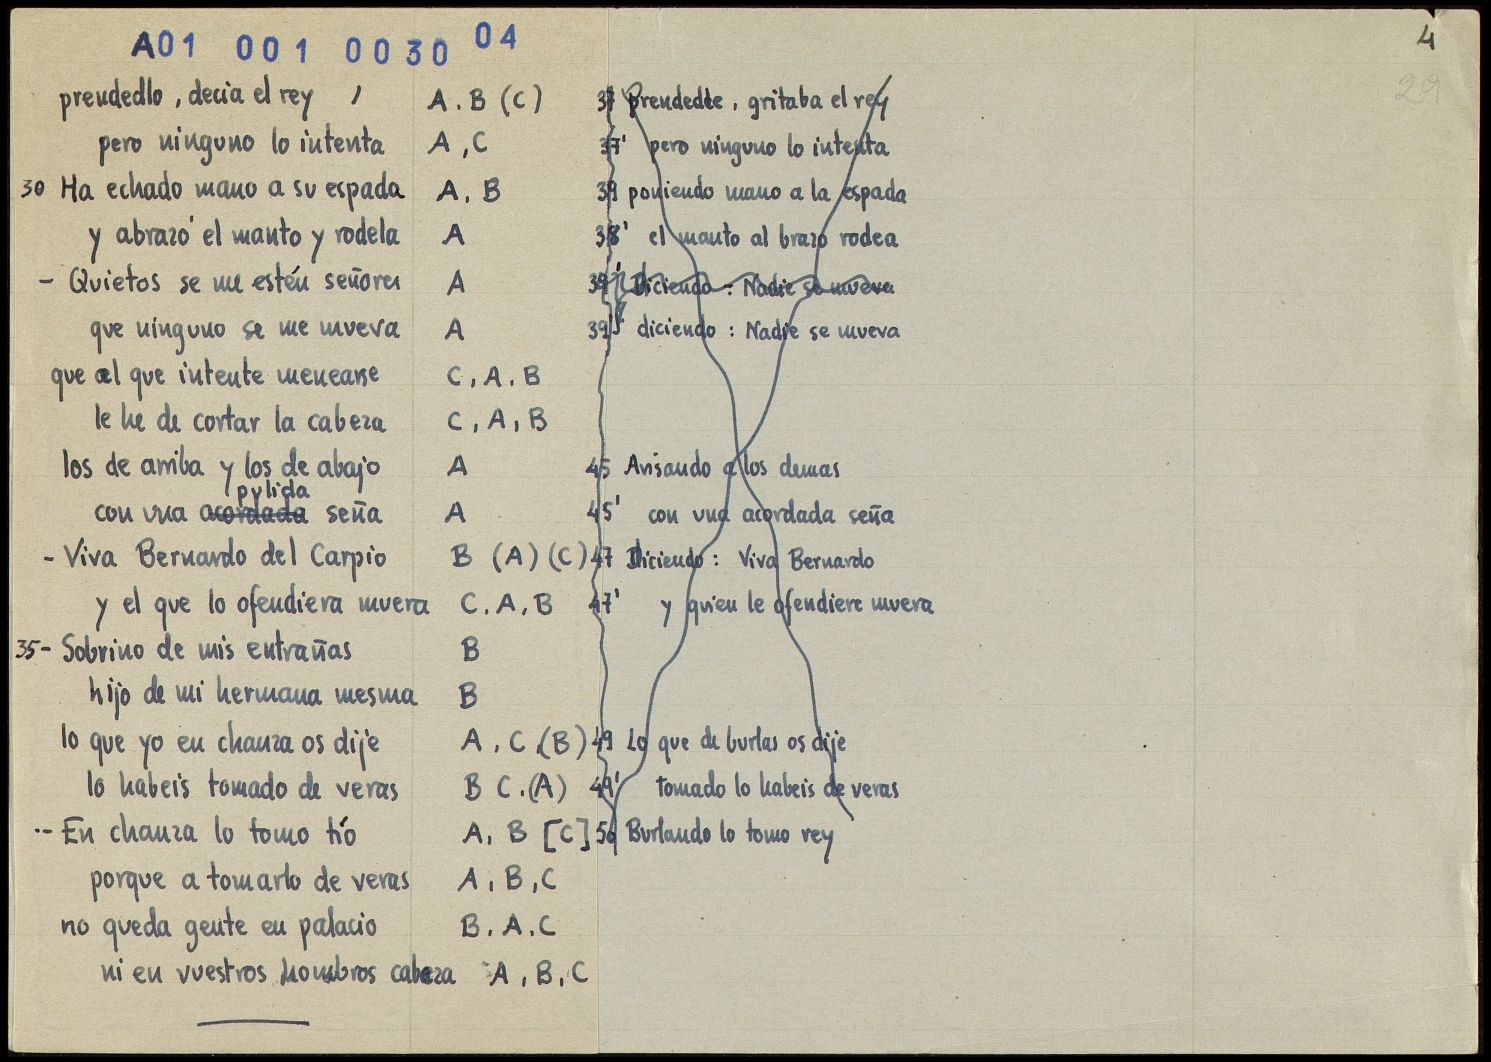 A01 001 0030 04
4
29
prendedlo, decia el rey , A. B (C) 37 prendedle, gritaba el rey
pero ninguno lo intenta A, C 37' pero ninguno lo intenta
30 Ha echado mano a su espada A, B 39 poniendo mano a la espada
y abrazó el manto y rodela A 38' el manto al brazo rodea
- Quietos se me estén señores A 39' Diciendo: Nadie se mueva
que ninguno se me mueva A 39' diciendo: Nadie se mueva
que al que intente menearse C, A, B
le he de cortar la cabeza C, A, B
los de arriba y los de abajo A 45 Avisando a los demas
pulida
con una acordada seña A 45' con una acordada seña
- Viva Bernardo del Carpio B (A) (C) 47 Diciendo: Viva Bernardo
y el que lo ofendiera muera C, A, B 47' y quien le ofendiere muera
35 - Sobrino de mis entrañas B
hijo de mi hermana mesma B
lo que yo en chanza os dije A, C, (B) 49 Lo que de burlas os dije
lo habeis tomado de veras B C. (A) 49' tomado lo habeis de veras
-- En chanza lo tomo tío A, B [C] 50 Burlando lo tomo rey
porque a tomarlo de veras A, B, C
no queda gente en palacio B. A. C
ni en vuestros hombros cabeza A, B, C